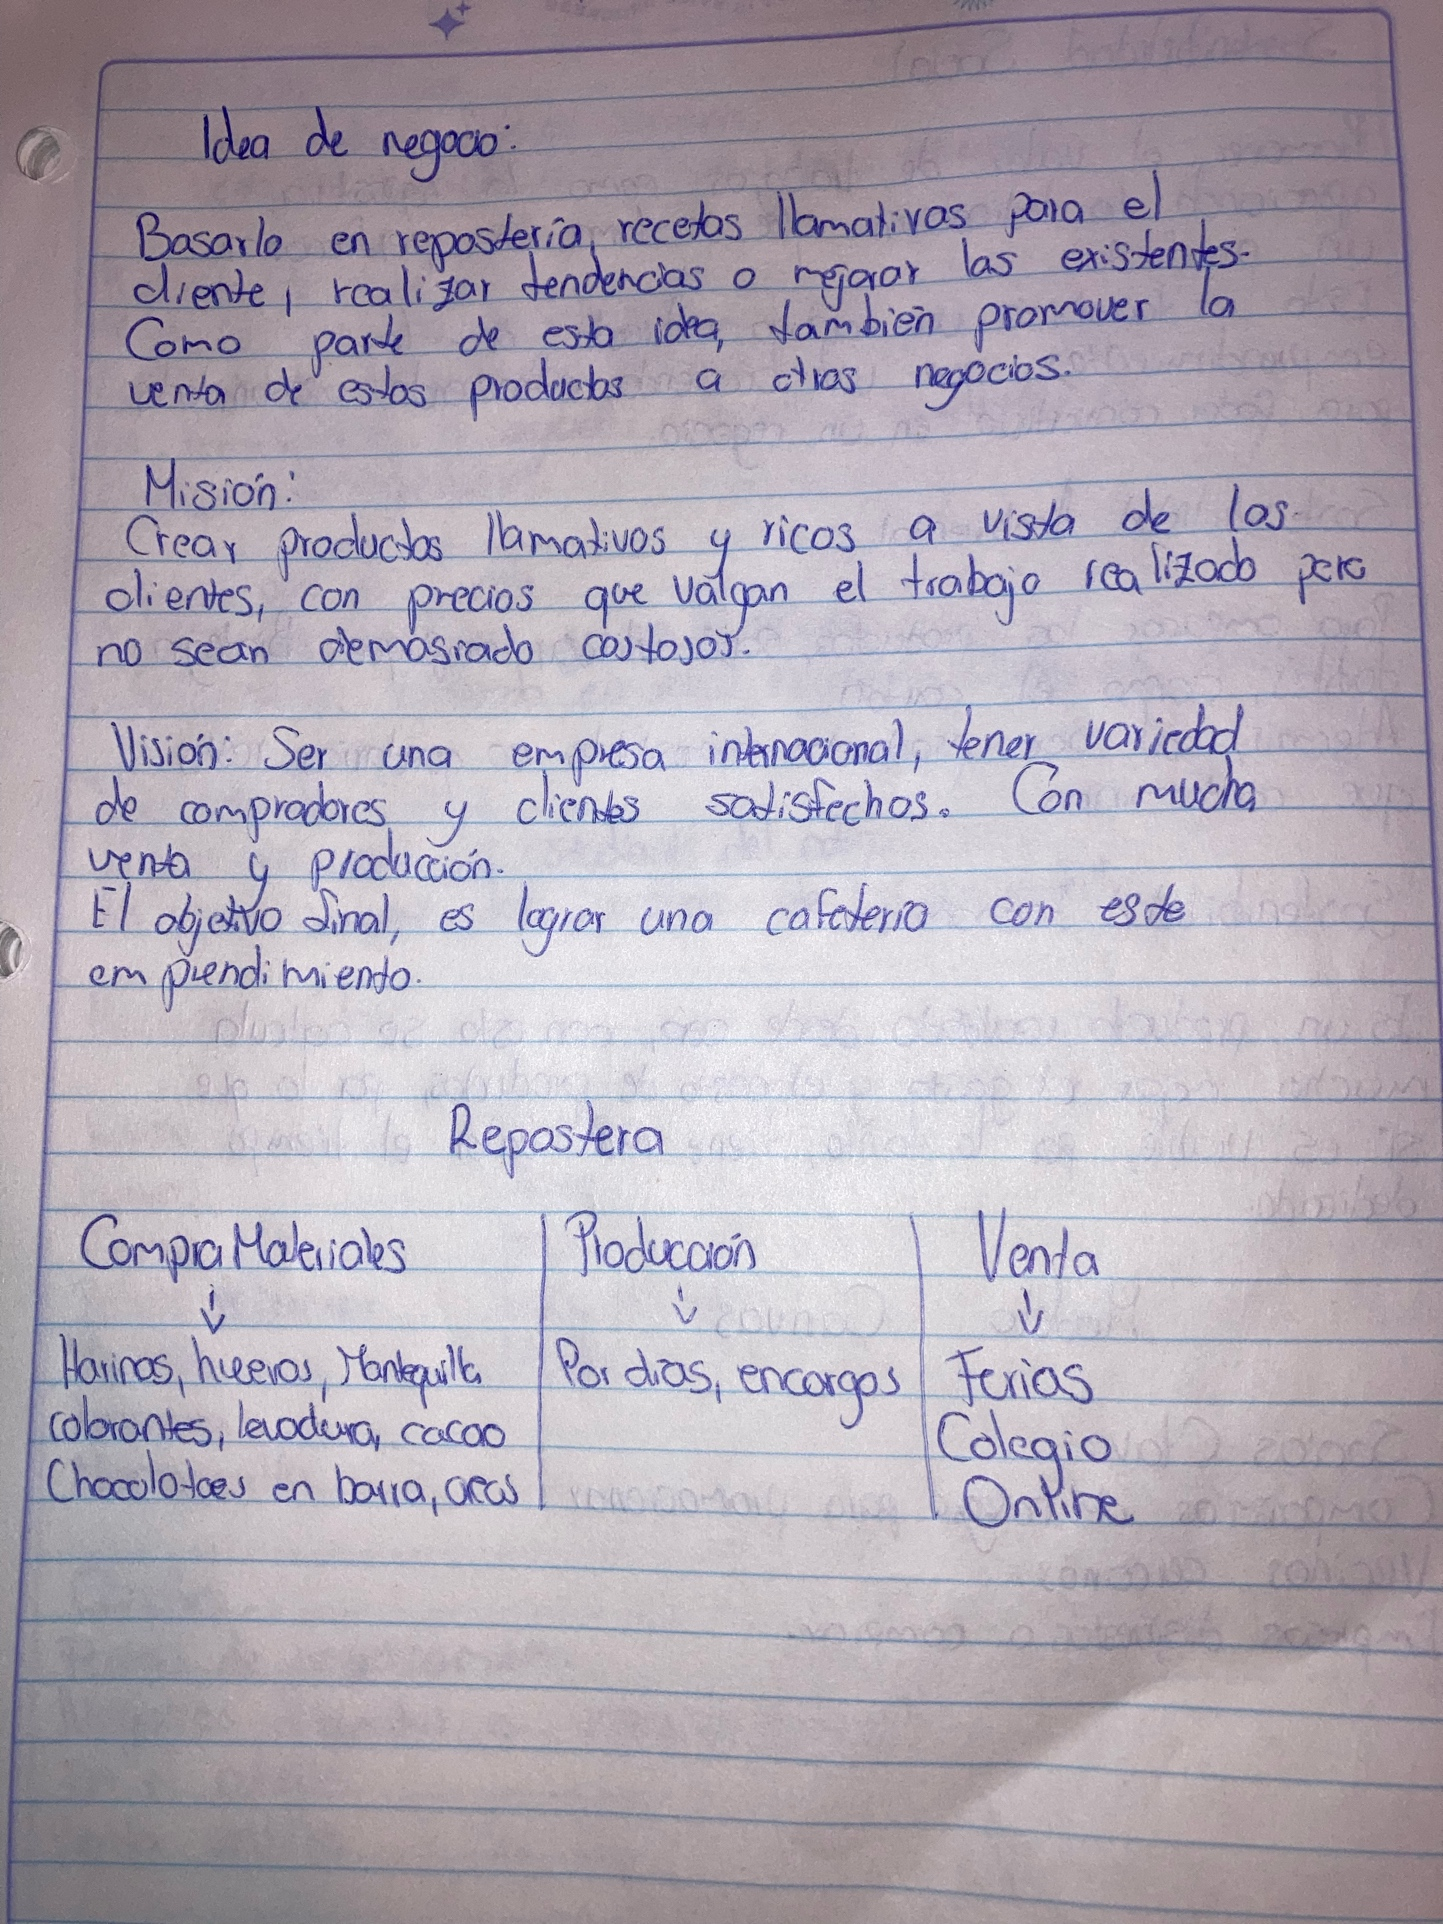 Idea de negocio:
Basarlo en repostería, recetas llamativas para el
cliente, realizar tendencias o mejorar las existentes.
Como parte de esta idea, también promover la
venta de estos productos a otros negocios.
Misión:
Crear productos llamativos y ricos a vista de los
clientes, con precios que valgan el trabajo realizado pero
no sean demasiado costosos.
Visión: Ser una empresa internacional, tener variedad
de compradores y clientes satisfechos. Con mucha
venta y producción.
El objetivo final, es lograr una cafetería con este
emprendimiento.
Repostera
Compra Materiales | Producción | Venta
↓ ↓ ↓
Harinas, huevos, Mantequilla | Por días, encargos | Ferias
colorantes, levadura, cacao Colegio
en barra, Online